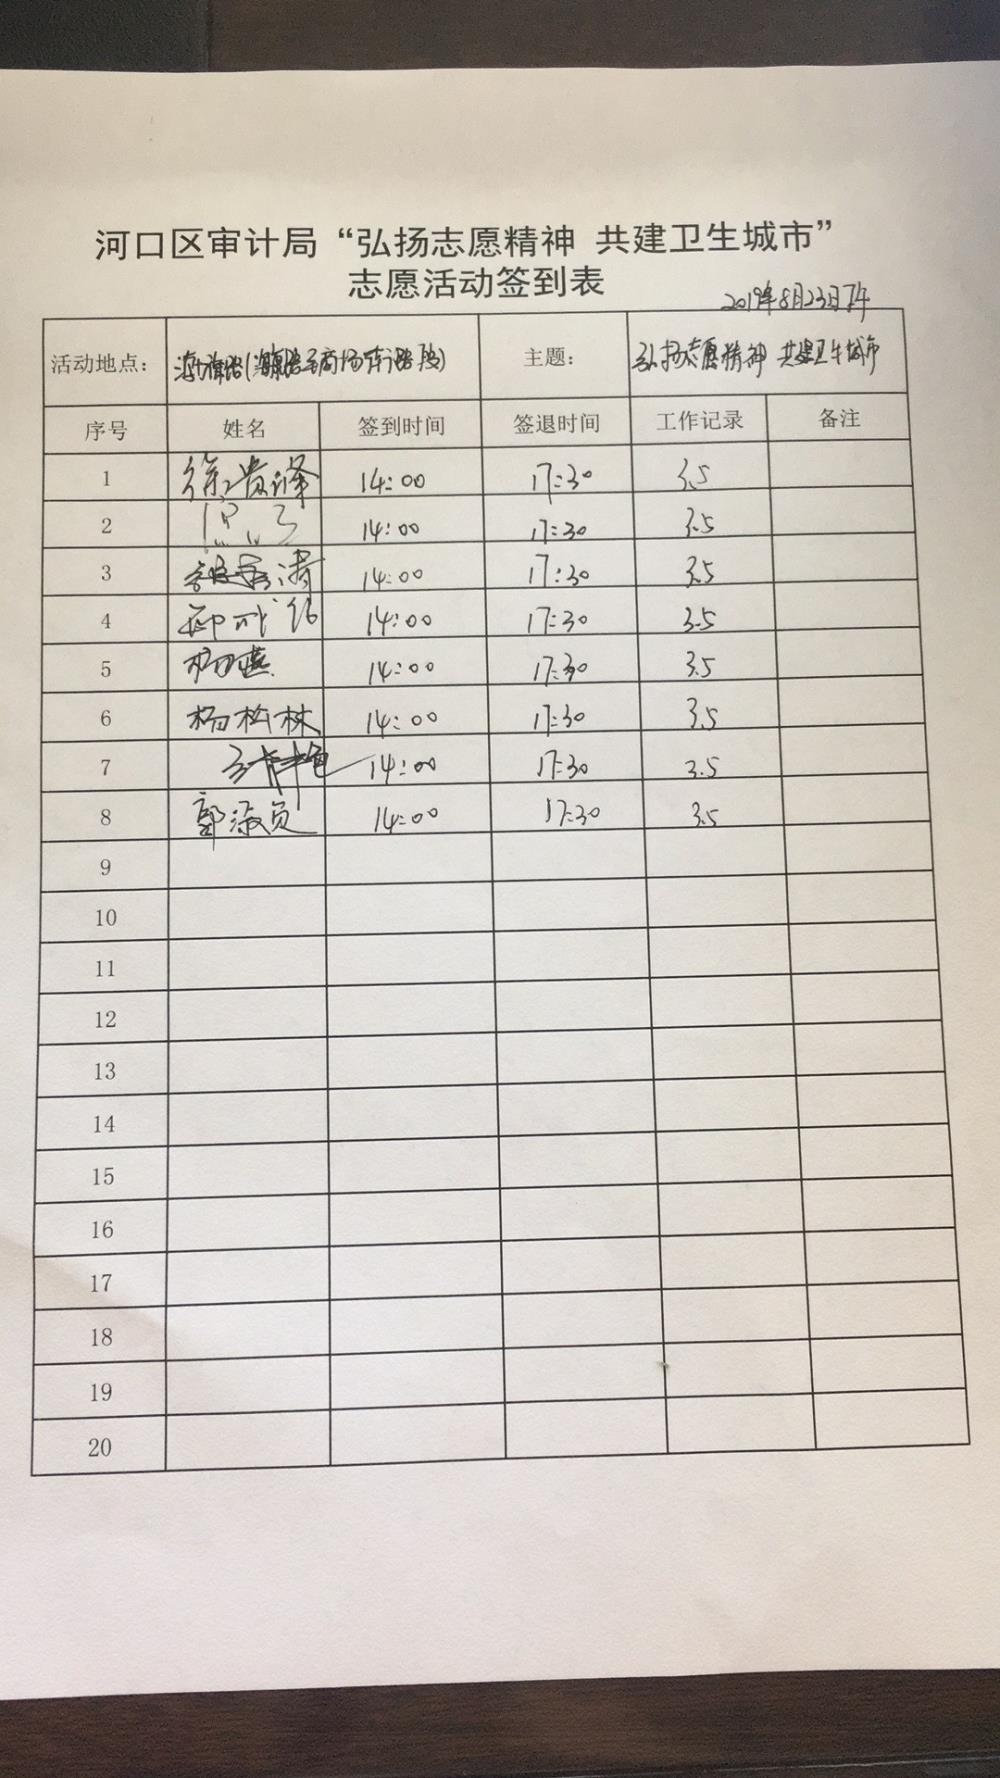 河口区审计局“弘扬志愿精神 共建卫生城市”
志愿活动签到表
2019年8月23日下午
活动地点： 主题： 弘扬志愿精神 共建卫生城市
序号 姓名 签到时间 签退时间 工作记录 备注
1 徐贵泽 14:00 17:30 3.5
2 14:00 17:30 3.5
3 14:00 17:30 3.5
4 14:00 17:30 3.5
5 杨燕 14:00 17:30 3.5
6 杨松林 14:00 17:30 3.5
7 14:00 17:30 3.5
8 郭淑贞 14:00 17:30 3.5
9
10
11
12
13
14
15
16
17
18
19
20